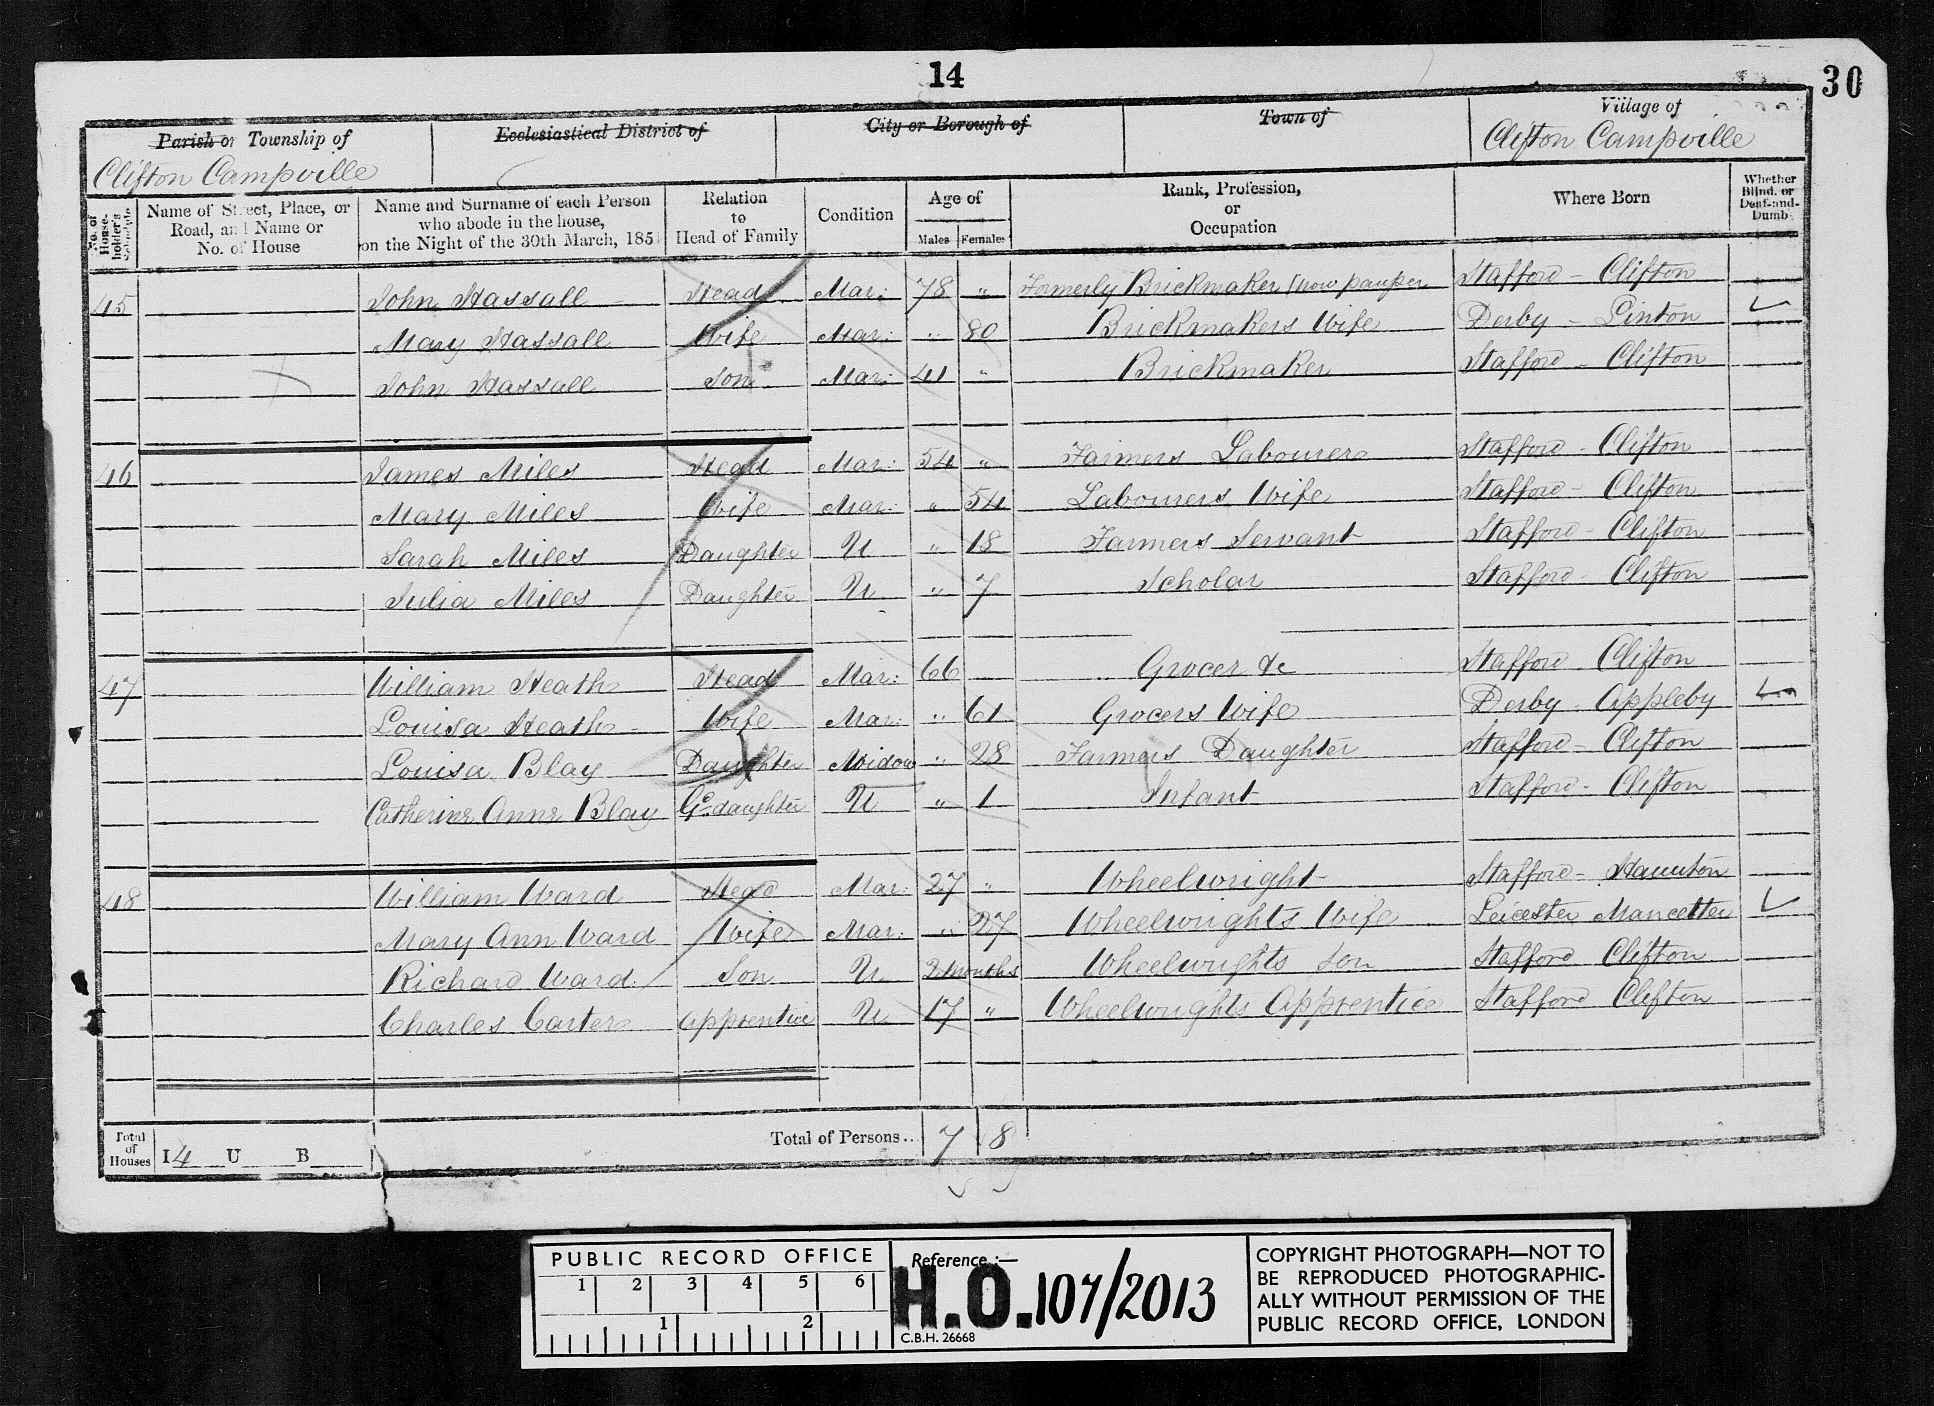 14
30
Parish or Township of
Clifton Campville
Ecclesiastical District of
City or Borough of
Town of
Village of
Clifton Campville
No. of House-holder's Schedule
Name of Street, Place, or Road, and Name or No. of House
Name and Surname of each Person who abode in the house, on the Night of the 30th March, 1851
Relation to Head of Family
Condition
Age of
Males Females
Rank, Profession, or Occupation
Where Born
Whether Blind, or Deaf-and-Dumb
45 John Hassall Head Mar: 78 " Formerly Brickmaker (now pauper Stafford - Clifton
Mary Hassall Wife Mar: " 80 Brickmakers Wife Derby - Linton
John Hassall Son Mar: 41 " Brickmaker Stafford - Clifton
46 James Miles Head Mar: 54 " Farmers Labourer Stafford - Clifton
Mary Miles Wife Mar: " 54 Labourers Wife Stafford - Clifton
Sarah Miles Daughter U " 18 Farmers Servant Stafford - Clifton
Julia Miles Daughter U " 7 Scholar Stafford - Clifton
47 William Heath Head Mar: 66 Grocer &c Stafford - Clifton
Louisa Heath Wife Mar: " 61 Grocers Wife Derby - Appleby
Louisa Blay Daughter Widow " 28 Farmers Daughter Stafford - Clifton
Catherine Anne Blay G.daughter U " 1 Infant Stafford - Clifton
48 William Ward Head Mar: 27 " Wheelwright Stafford - Haunton
Mary Ann Ward Wife Mar: " 27 Wheelwrights Wife Leicester Mancetter
Richard Ward Son U 2 Months Wheelwrights Son Stafford Clifton
Charles Carter Apprentice U 17 " Wheelwrights Apprentice Stafford Clifton
Total of Houses I 4 U B Total of Persons.. 7 8
PUBLIC RECORD OFFICE
1 2 3 4 5 6
1 2
Reference :-
H.O. 107/2013
C.B.H. 26668
COPYRIGHT PHOTOGRAPH—NOT TO
BE REPRODUCED PHOTOGRAPHIC-
ALLY WITHOUT PERMISSION OF THE
PUBLIC RECORD OFFICE, LONDON